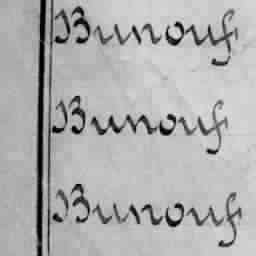 Bunouf
Bunouf
Bunouf